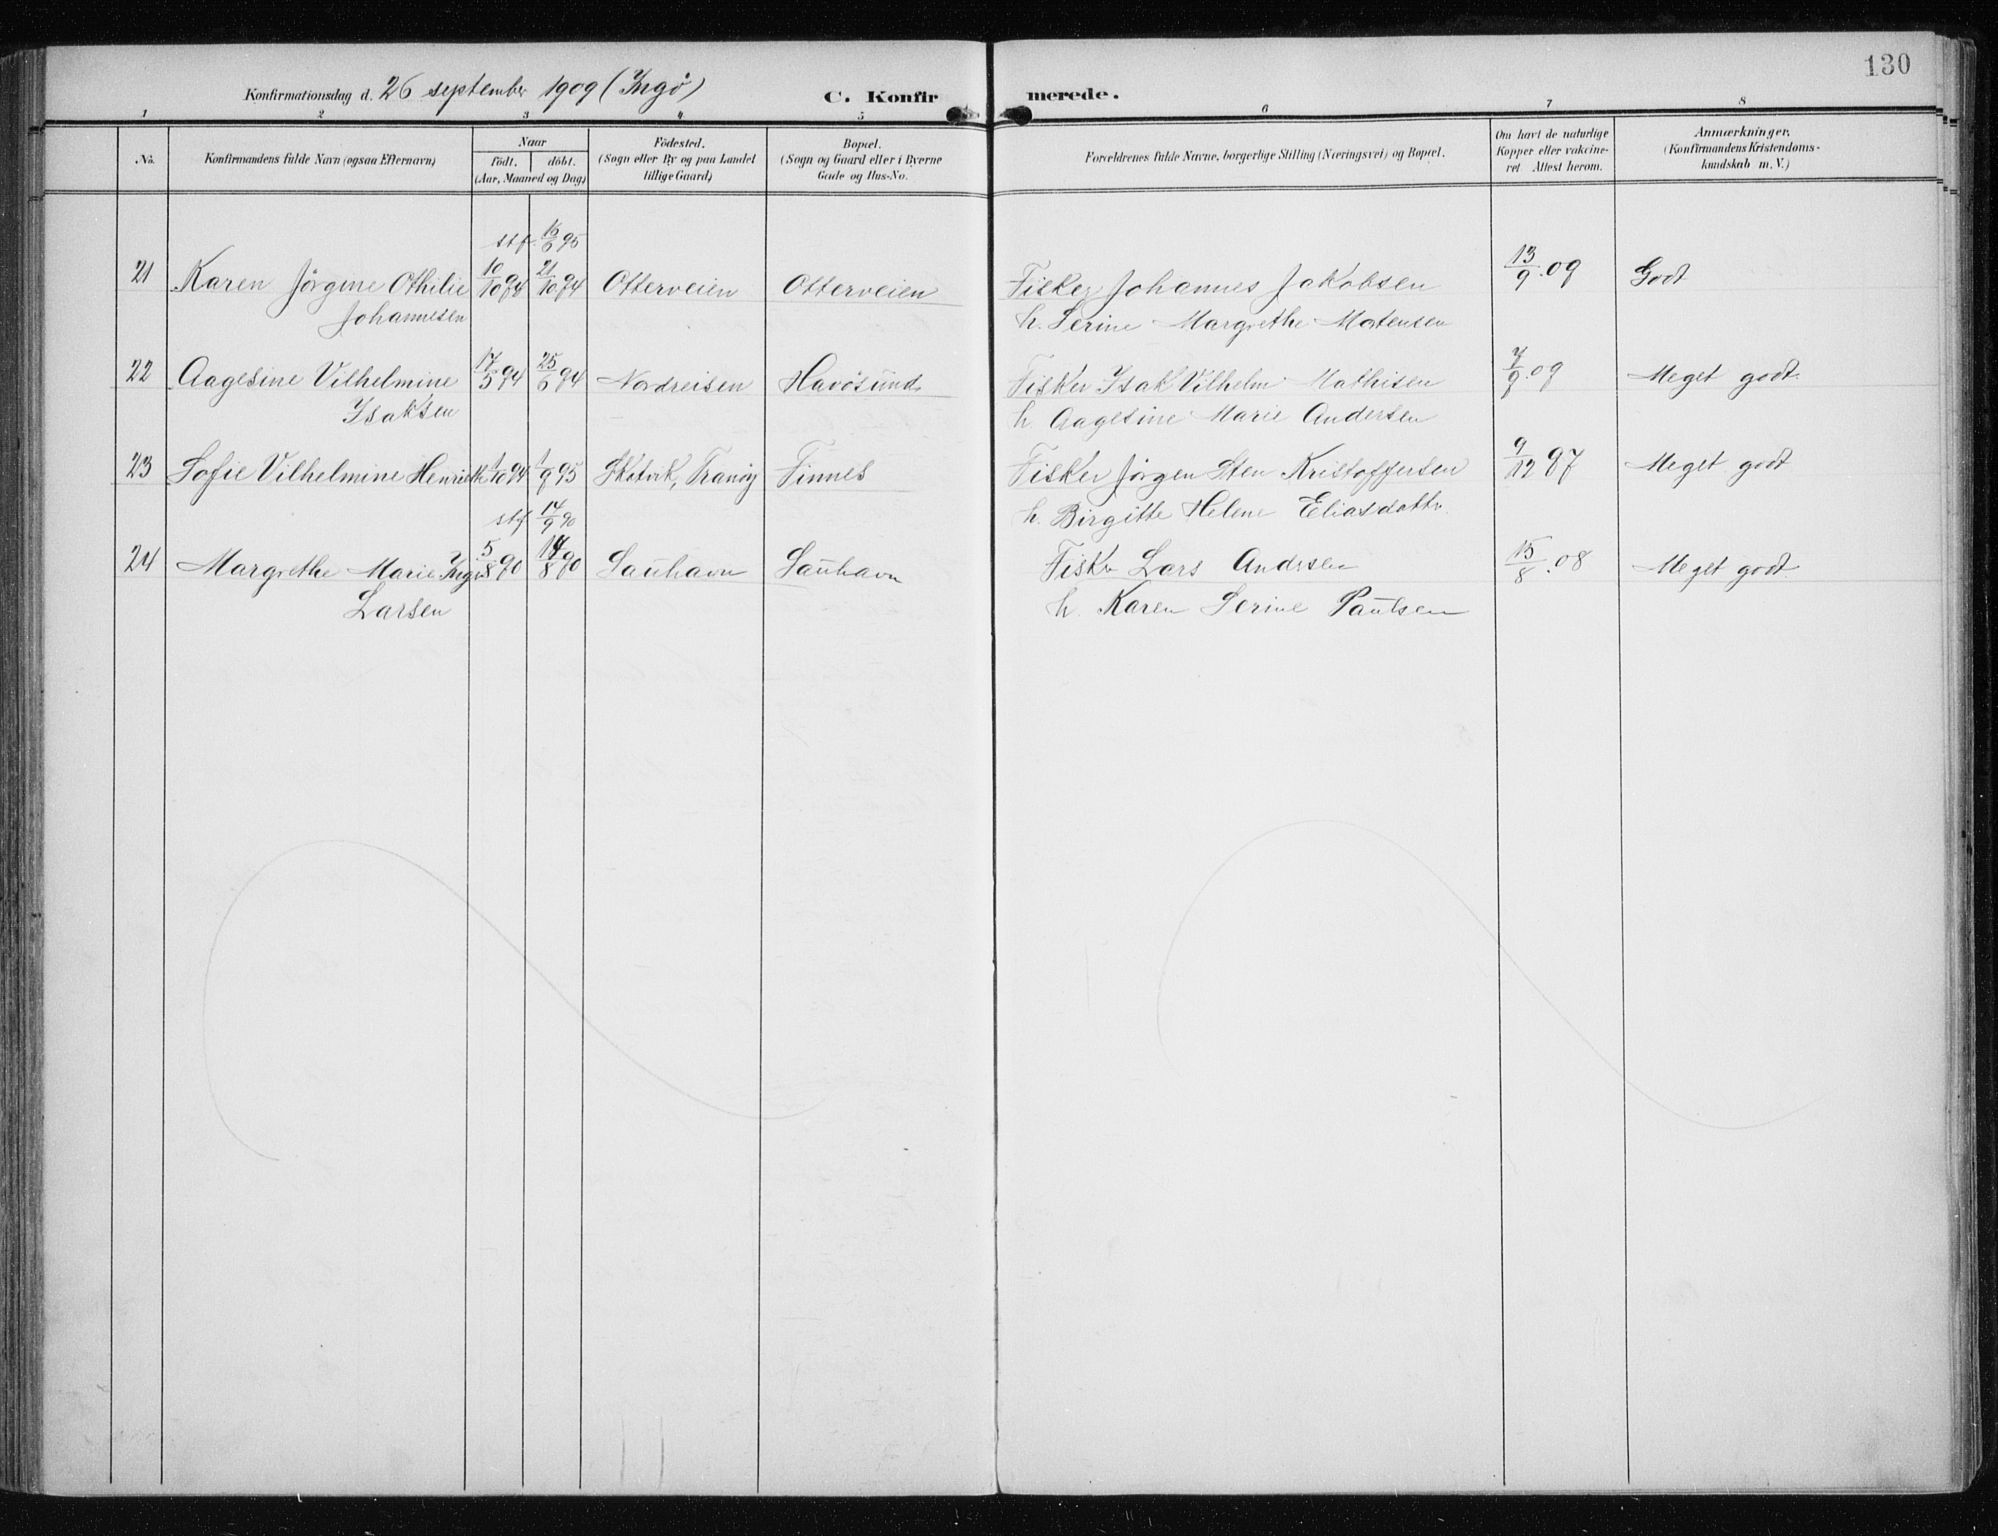 130
Konfirmationsdag d. 26 september 1909 (Ingø)
C. Konfirmerede.
1 2 3 4 5 6 7 8
No.
Konfirmandens fulde Navn (ogsaa Efternavn)
Naar
födt. döbt.
(Aar, Maaned og Dag)
Födested.
(Sogn eller By og paa Landet
tillige Gaard)
Bopæl.
(Sogn og Gaard eller i Byerne
Gade og Hus-No.
Forældrenes fulde Navne, borgerlige Stilling (Næringsvei) og Bopæl.
Om havt de naturlige
Kopper eller vakcine-
ret. Attest herom.
Anmærkninger.
(Konfirmandens Kristendoms-
kundskab m. V.)
stf. 16/6 95
21 Karen Jörgine Othilie 10/10 94 21/10 94 Otterveien Otterveien Fisker Johannes Jakobsen 13/9.09 Godt
Johannesen h. Serine Margrethe Mortensen
22 Aagesine Vilhelmine 17/5 94 25/6 94 Nordreisen Havösund Fisker Isak Vilhelm Mathisen 7/9.09 Meget godt
Isaksen h. Aagesine Marie Andersen
23 Sofie Vilhelmine 1/10 94 1/9 95 Skatvik, Tranøy Finnes Fisker Jörgen Sten Kristoffersen 9/12 87 Meget godt
h. Birgitte Helene Eliasdattr.
stf. 14/9 90
24 Margrethe Marie 5/8 90 14/8 90 Sauhavn Sauhavn Fisker Lars Andersen 15/8.08 Meget godt
Larsen h. Karen Serine Paulsen